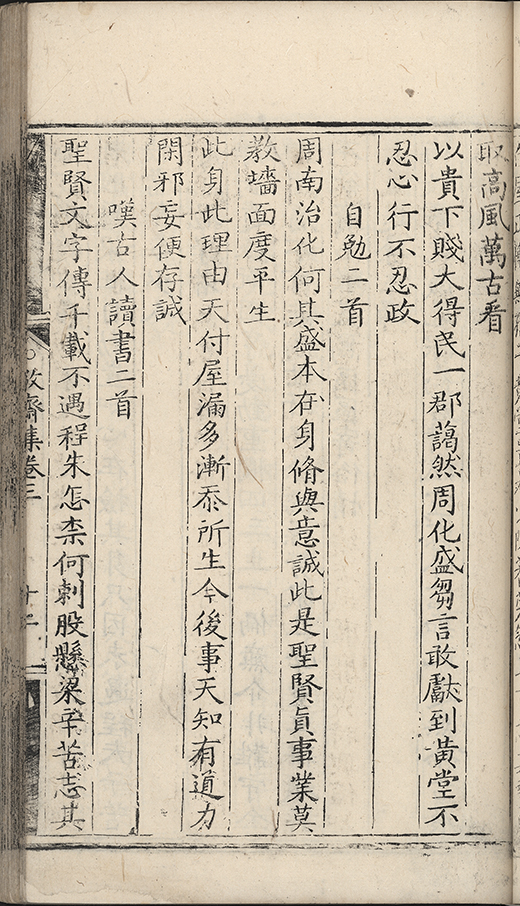 取高風萬古看
以貴下賤大得民一郡藹然周化盛芻言敢獻到黃堂不
忍心行不忍政
自勉二首
周南治化何其盛本在身脩與意誠此是聖賢眞事業莫
教墻面度平生
此身此理由天付屋漏多漸忝所生今後事天知有道力
閑邪妄便存誠
嘆古人讀書二首
聖賢文字傳千載不遇程朱怎柰何刺股懸梁辛苦志其
齋集卷三